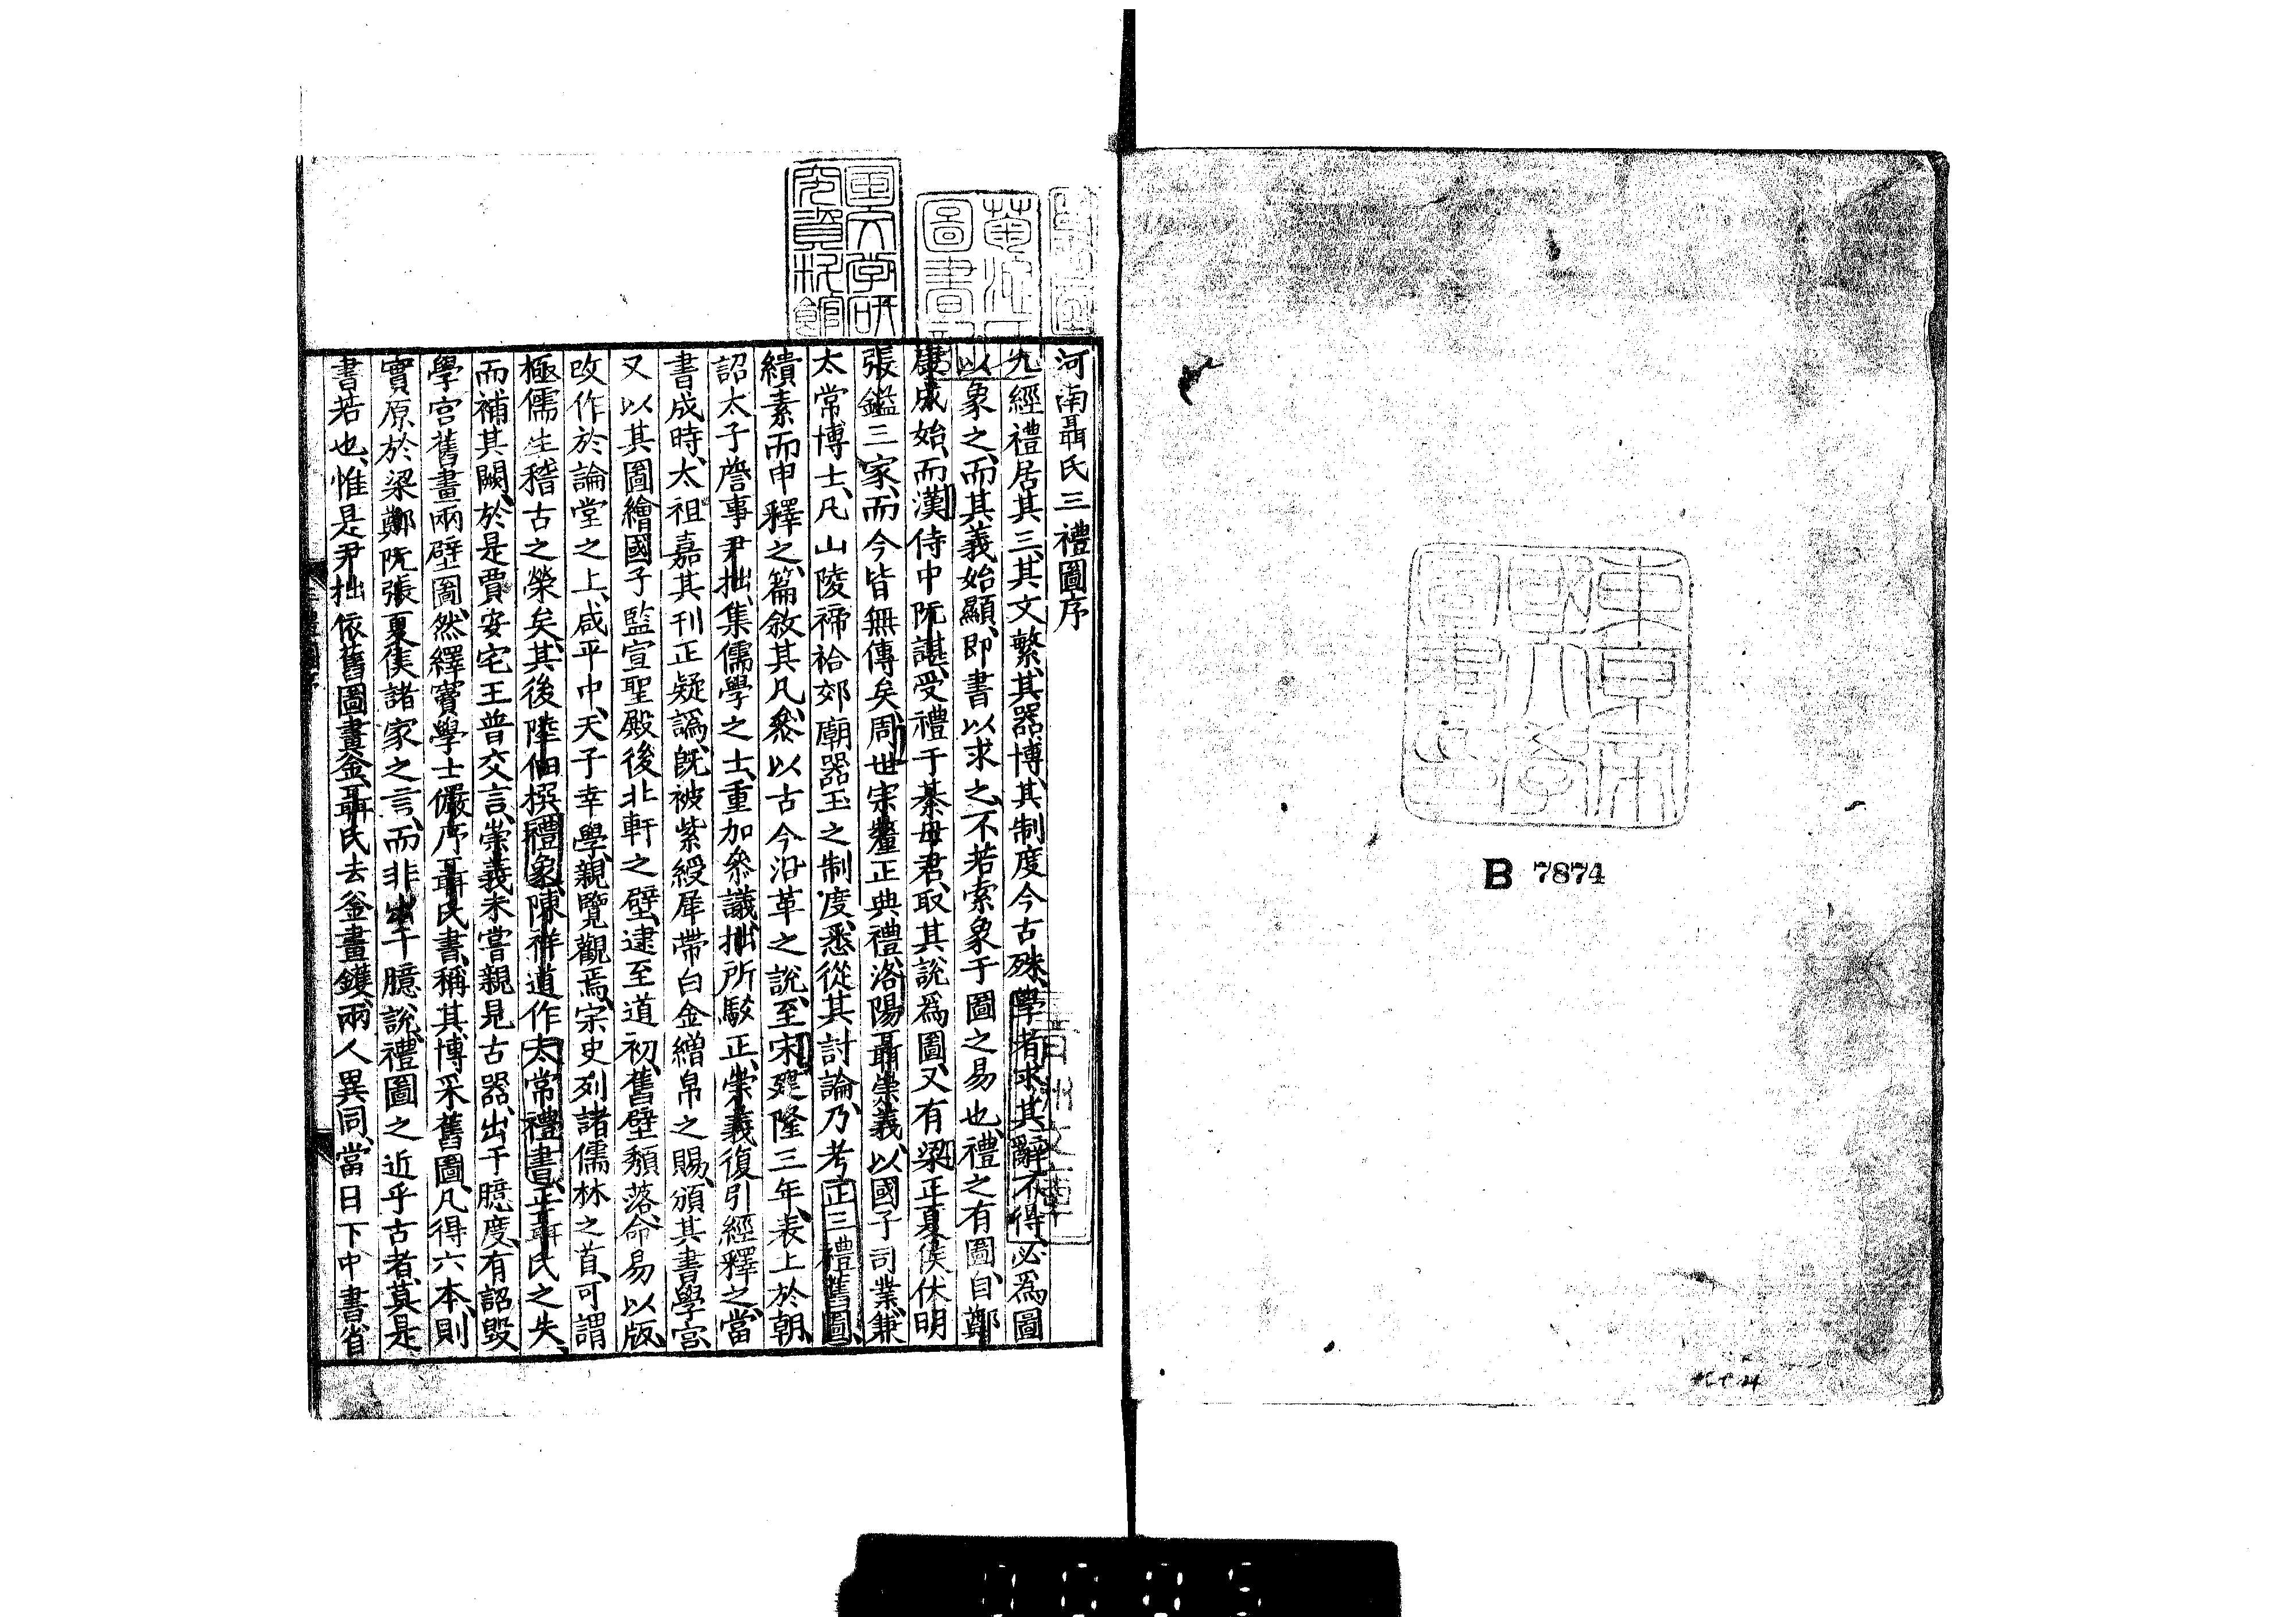 東京帝
國大學
圖書印
B 7874
河南聶氏三禮圖序
九經禮居其三其文繁其器博其制度今古殊學者求其辭不得必為圖
以象之而其義始顯即書以求之不若索象于圖之易也禮之有圖自鄭
康成始而漢侍中阮諶受禮于綦母君取其說爲圖又有梁正夏侯伏明
張鎰三家而今皆無傳矣周世宗釐正典禮洛陽聶崇義以國子司業兼
太常博士凡山陵禘祫郊廟器玉之制度悉從其討論乃考正三禮舊圖
繢素而申釋之篇敘其凡叅以古今沿革之說至宋建隆三年表上於朝
詔太子詹事尹拙集儒學之士重加叅議拙所駁正崇義復引經釋之當
書成時太祖嘉其刊正疑譌既被紫綬犀帶白金繒帛之賜頒其書學宮
又以其圖繪國子監宣聖殿後北軒之壁逮至道初舊壁頽落命易以版
改作於論堂之上咸平中天子幸學親覽觀焉宗史列諸儒林之首可謂
極儒生稽古之榮矣其後陸佃撰禮象陳祥道作太常禮書正聶氏之失
而補其闕於是賈安宅王普交言崇義未嘗親見古器出于臆度有詔毀
學宮舊畫兩壁圖然繹竇學士儼序聶氏書稱其博采舊圖凡得六本則
實原於梁鄭阮張夏侯諸家之言而非出于臆說禮圖之近乎古者莫是
書若也惟是尹拙依舊圖畫釜聶氏去釜畫鑊兩人異同當日下中書省